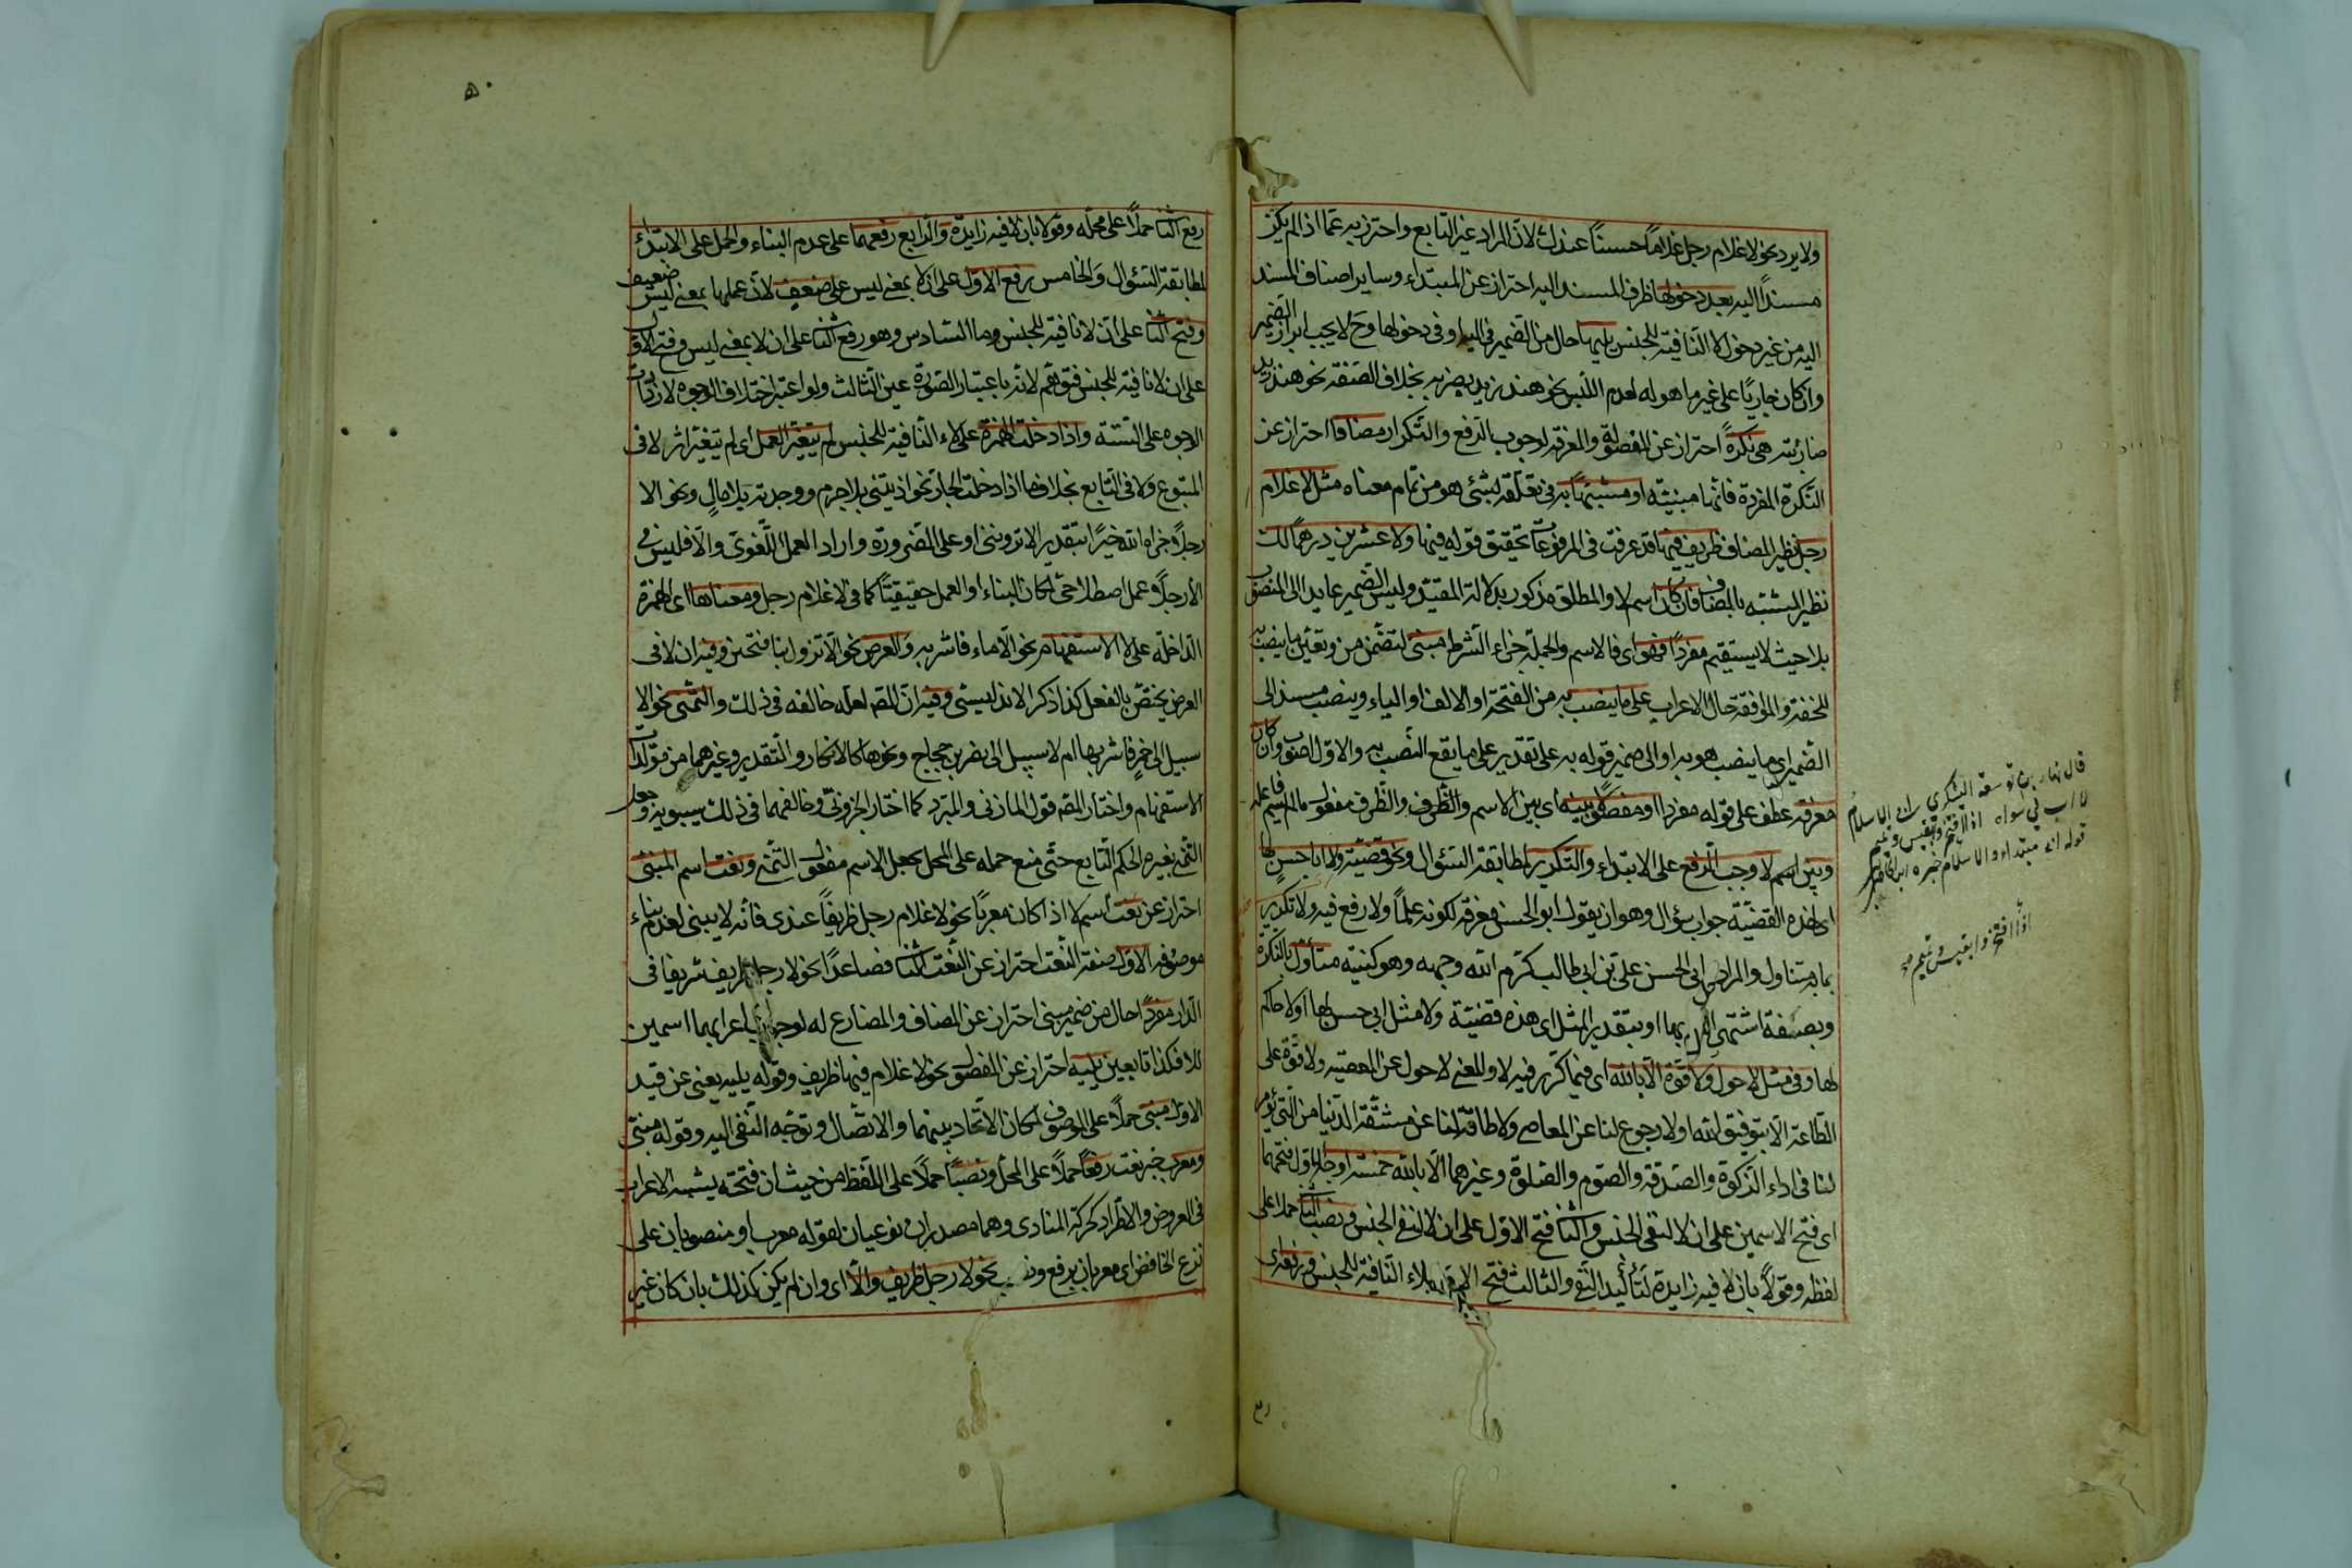 ولا يرد نحو لا غلام رجل غلاما حسنا عندك لان المراد غير التابع واحترز به عما اذا لم يكن
مسندا اليه بعد دخولها ظرف المسند اليه احتراز عن المبتداء وساير اصناف المسند
اليه من غير دخول لا النافية للجنس يليها حال من الضمير في اليه او في دخولها وح لا يجب ابراز الضمير
وان كان جاريا على غير ما هو له لعدم اللبس نحو هند زيد يضربه بخلاف الصفة نحو هند زيد
ضاربته هي نكرة احتراز عن المفصولة والمعرفة لوجوب الرفع والتكرار مضافا احتراز عن
النكرة المفردة فانها مبنية او مشبها به في تعلقه بشئ هو من تمام معناه مثل لا غلام
رجل نظير المضاف ظريف فيها قد عرفت في المرفوعات تحقيق قوله فيها ولا عشرين درهما لك
نظير المشبه بالمضاف فان كان اسم لا والمطلق مذكور بدلالة المقيد وليس الضمير عايد الى المنصوب
بلا حيث لا يستقيم مفردا فهو اي فالاسم والجملة جزاء الشرط مبنى لتضمن من وتعين ما ينصب به
للخفة والموافقة حال الاعراب على ما ينصب به من الفتحة او الالف او الياء وينصب مسند الى
الضمير اي ما ينصب هو به او الى ضمير قوله به على تقدير على ما يقع النصب به والاول اصوب وان كان
معرفة عطف على قوله مفردا او مفصولا بينه اي بين الاسم والظرف والظرف مفعول ما لم يسم فاعله
وبين اسم لا وجب الرفع على الابتداء والتكرير لمطابقة السؤال ونحو قضية ولا ابا حسن لها
اي لهذه القضية جواب سؤال وهو ان يقول ابو الحسن معرفة لكونه علما ولا رفع فيه ولا تكرير
بما به متناول والمراد من ابي الحسن على بن ابي طالب كرم الله وجهه وهو كنيته متأول بالنكرة
وبصفة اشتهر الرجل بها او بتقدير المثل اي هذه قضية ولا مثل ابي حسن لها او لا حاكم
لها وفي مثل لا حول ولا قوة الا بالله اي فيما كرر فيه لا والمعنى لا حول عن المعصية ولا قوة على
الطاعة الا بتوفيق الله او لا رجوع لنا عن المعاصي ولا طاقة لنا عن مشقة الدنيا من التي يؤمر
لنا في اداء الزكوة والصدقة والصوم والصلوة وغيرهما الا بالله خمسة اوجه الاول فتحهما
اي فتح الاسمين على ان لا لنفي الجنس والثاني فتح الاول على ان لا لنفي الجنس ونصب الثاني حملا على
لفظه وقولا بان لا فيه زايدة لتأكيد النفي والثالث فتح الاول بلاء النافية للجنس ورفعه اي
قال نهار بن توسعة اليشكري
اذا افتخروا بقيس وتميم
رفع الثاني حملا على محله وقولا بان لا فيه زايدة والرابع رفعهما على عدم البناء والحمل على الابتداء
لمطابقة السؤال والخامس رفع الاول على ان لا بمعنى ليس على ضعيف لان عملها بمعنى ليس ضعيف
وفتح الثاني على ان لا نافية للجنس وما السادس وهو رفع الثاني على ان لا بمعنى ليس وفتح الاول
على ان لا نافية للجنس فتوهم لانه باعتبار الصورة عين الثالث ولو اعتبر اختلاف الوجوه لازدادت
الاوجه على الستة واذا دخلت الهمزة على لاء النافية للجنس لم يتغير العمل اي لم يتغير اثر لا في
المتبوع ولا في التابع بخلاف ما اذا دخلت الجار نحو اذيتني بلا جرم ووجدته بلا مال ونحو الا
رجلا جزاه الله خيرا بتقدير الا ترونني او على الضرورة واراد العمل اللغوي والا فليس في
الا رجل عمل اصطلاحي لمكان البناء او العمل حقيقيا كما في لا غلام رجل ومعناها اي الهمزة
الداخلة على لا الاستفهام نحو الا ماء فاشربه والعرض نحو الا تنزل بنا فتحن وفيه ان لا في
العرض يختص بالفعل كذا ذكر الاندلسي وفيه ان المص لعله خالفه في ذلك والتمنى نحو الا
سبيل الى خمر فاشربها ام لا سبيل الى نصر بن حجاج ونحوها كالانكار والتقدير وغيرهما من مؤلدات
الاستفهام واختار المص قول المازني والمبرد كما اختار الجزوني وخالفهما في ذلك سيبويه وجعل
التمني بغيره الحكم التابع حتى منع حمله على المحل بجعل الاسم مفعول التمني ونعت اسم المبنى
احتراز عن نعت اسم لا اذا كان معربا نحو لا غلام رجل ظريفا عندى فانه لا يبنى لعدم بناء
موصوفه الاول صفة النعت احتراز عن النعت الثاني فصاعدا نحو لا رجل ظريف شريفا في
الدار مفردا حال من ضمير مبنى احتراز عن المضاف والمضارع له لوجوب اعرابهما اسمين
للا فكذا تابعين يليه احتراز عن المفصول نحو لا غلام فيها ظريف وقوله يليه يغنى عن قيد
الاول مبنى حملا على الموصوف لمكان الاتحاد بينهما والاتصال وتوجه النفي اليه وقوله مبنى
ومعرب خبر نعت رفعا حملا على المحل ونصبا حملا على اللفظ من حيث ان فتحته يشبه الاعراب
في العروض والاطراد كحركة المنادى وهما مصدران نوعيان لقوله معرب او منصوبان على
نزع الخافض اي معربان برفع ونصب نحو لا رجل ظريف والا اي وان لم يكن كذلك بان كان غير